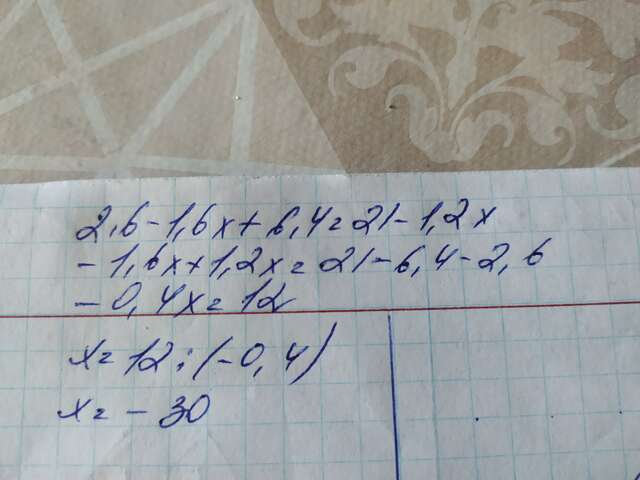 2,6-1,6x+6,4=21-1,2x
-1,6x+1,2x=21-6,4-2,6
-0,4x=12
x=12:(-0,4)
x=-30